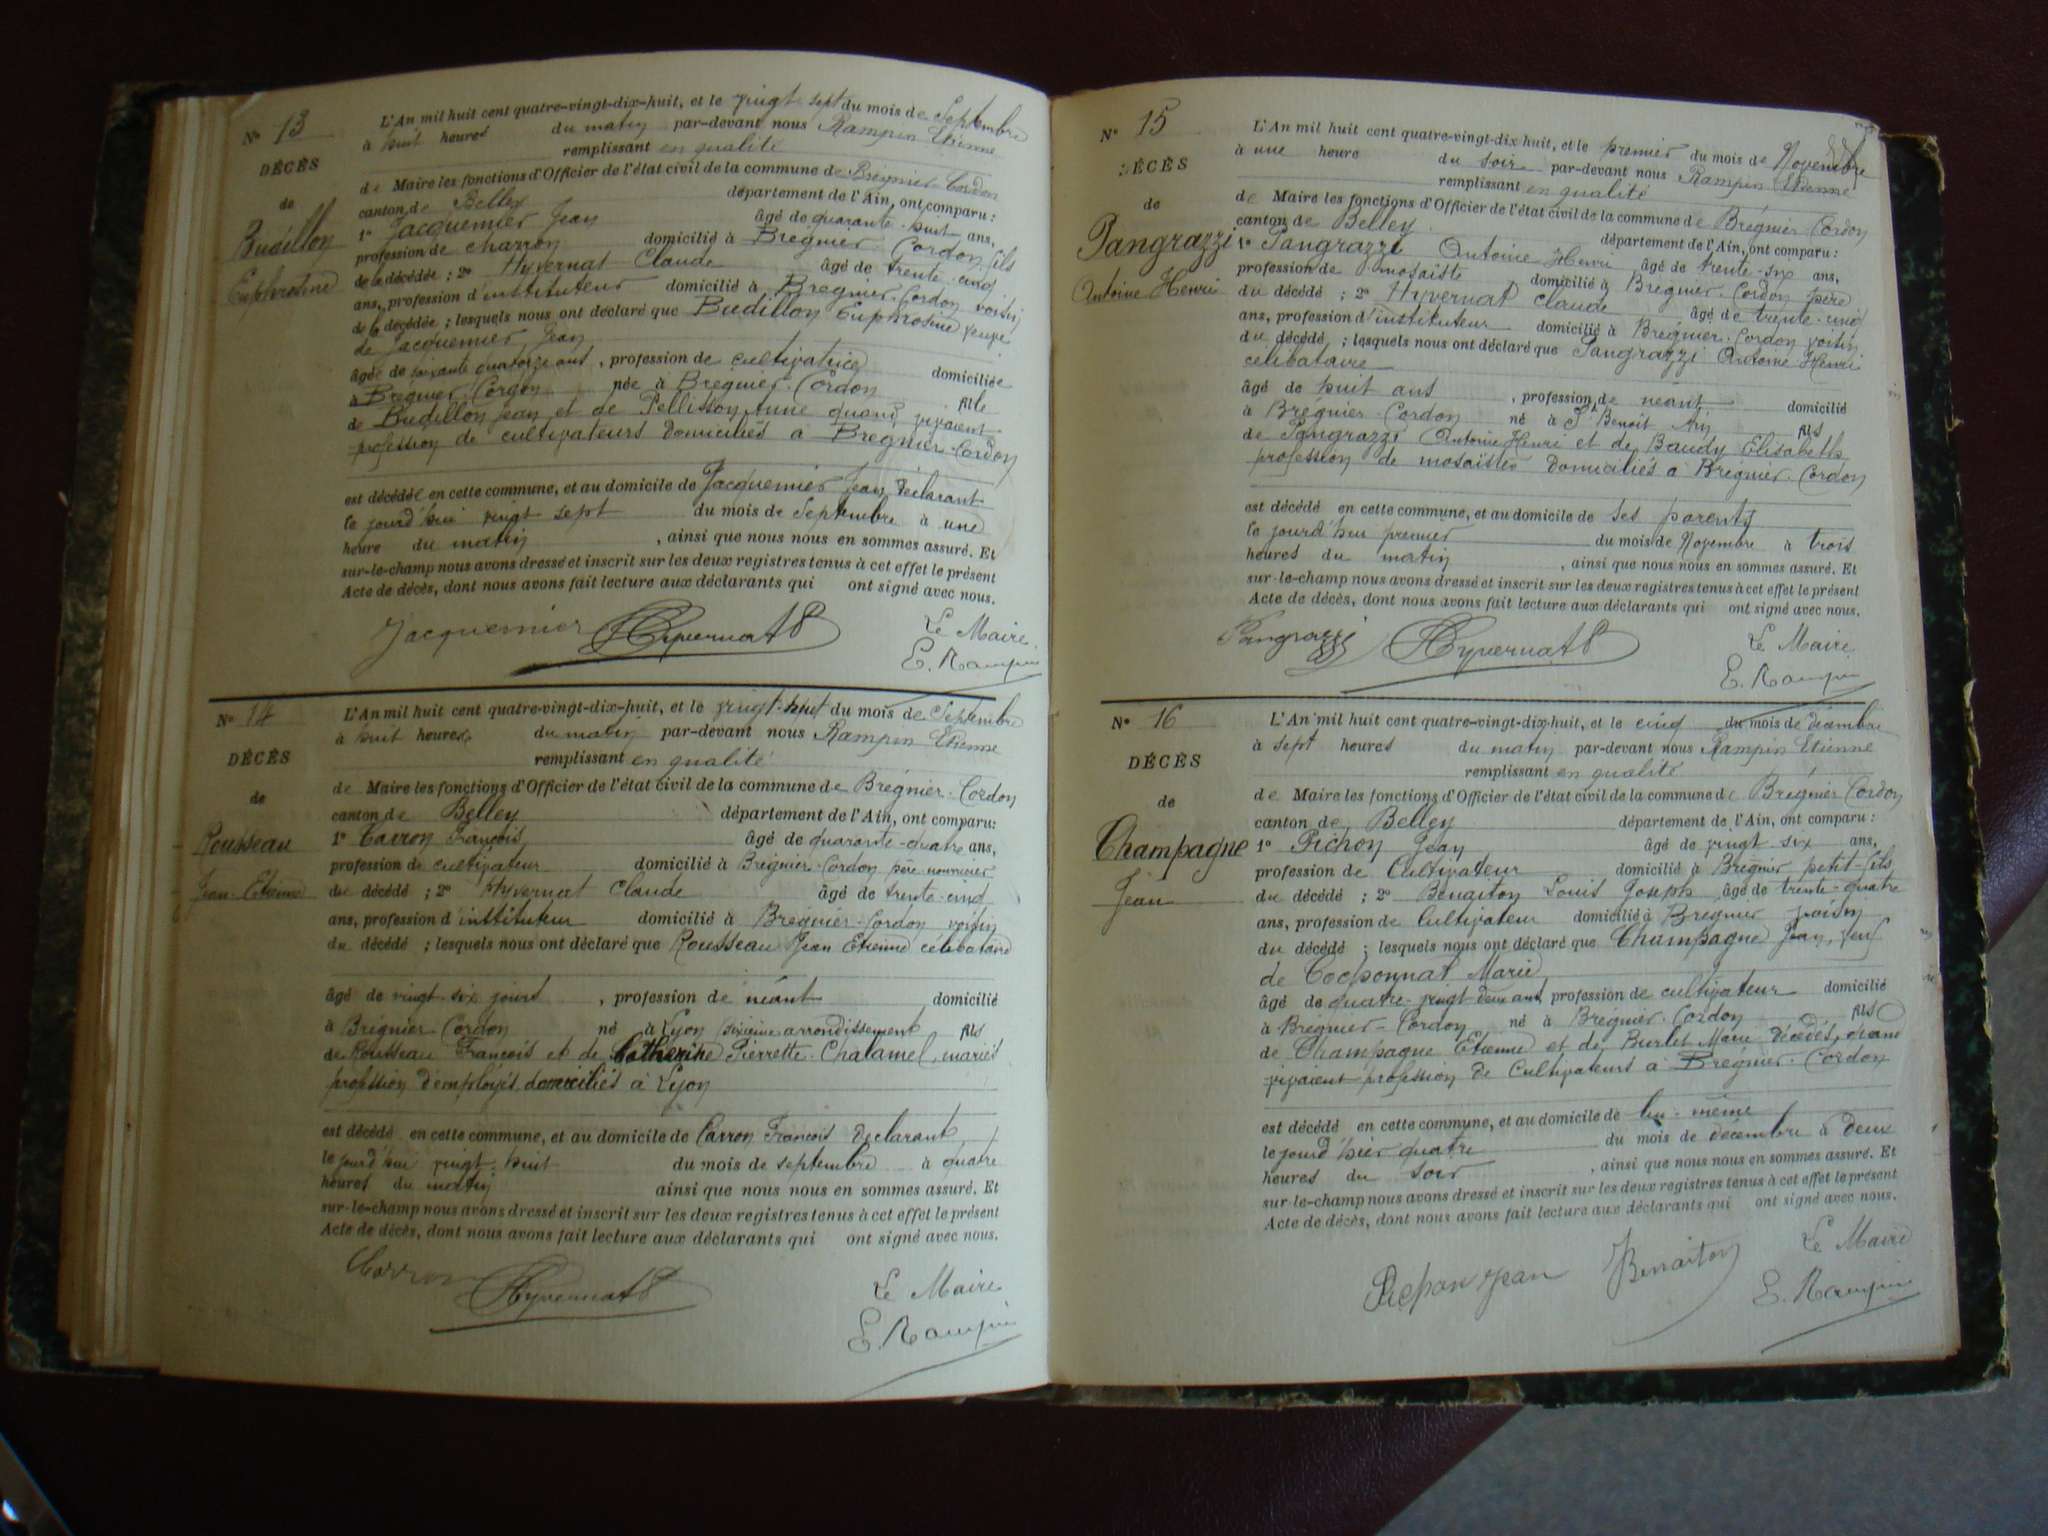 N° 13
DÉCÈS
de
Budillon
Euphrosine
L'An mil huit cent quatre-vingt-dix-huit, et le vingt sept du mois de Septembre
à huit heures du matin par-devant nous Rampin Etienne
remplissant en qualité
de Maire les fonctions d'Officier de l'état civil de la commune de Brégnier-Cordon
canton de Belley département de l'Ain, ont comparu :
1° Jacquemier Jean âgé de quarante-huit ans,
profession de charron domicilié à Brégnier-Cordon fils
de la décédée ; 2° Hyvernat Claude âgé de trente-cinq
ans, profession d'instituteur domicilié à Brégnier-Cordon voisin
de la décédée ; lesquels nous ont déclaré que Budillon Euphrosine veuve
de Jacquemier Jean
âgée de soixante quatorze ans, profession de cultivatrice domiciliée
à Brégnier-Cordon née à Brégnier-Cordon fille
de Budillon Jean et de Pellisson Anne quand vivaient
profession de cultivateurs domiciliés à Brégnier-Cordon
est décédée en cette commune, et au domicile de Jacquemier Jean déclarant
le jourd'hui vingt sept du mois de Septembre à une
heure du matin , ainsi que nous nous en sommes assuré. Et
sur-le-champ nous avons dressé et inscrit sur les deux registres tenus à cet effet le présent
Acte de décès, dont nous avons fait lecture aux déclarants qui ont signé avec nous.
Jacquemier Hyvernat Le Maire
E. Rampin
N° 14
DÉCÈS
de
Rousseau
Jean-Etienne
L'An mil huit cent quatre-vingt-dix-huit, et le vingt-huit du mois de Septembre
à huit heures du matin par-devant nous Rampin Etienne
remplissant en qualité
de Maire les fonctions d'Officier de l'état civil de la commune de Brégnier-Cordon
canton de Belley département de l'Ain, ont comparu :
1° Carron François âgé de quarante-quatre ans,
profession de cultivateur domicilié à Brégnier-Cordon père nourricier
du décédé ; 2° Hyvernat Claude âgé de trente-cinq
ans, profession d'instituteur domicilié à Brégnier-Cordon voisin
du décédé ; lesquels nous ont déclaré que Rousseau Jean Etienne célibataire
âgé de vingt-six jours , profession de néant domicilié
à Brégnier-Cordon né à Lyon sixième arrondissement fils
de Rousseau François et de Catherine Pierrette Chalamel, mariés
profession d'employés domiciliés à Lyon
est décédé en cette commune, et au domicile de Carron François déclarant
le jourd'hui vingt-huit du mois de septembre à quatre
heures du matin ainsi que nous nous en sommes assuré. Et
sur-le-champ nous avons dressé et inscrit sur les deux registres tenus à cet effet le présent
Acte de décès, dont nous avons fait lecture aux déclarants qui ont signé avec nous.
Carron Hyvernat Le Maire
E. Rampin
N° 15
DÉCÈS
de
Pangrazzi
Antoine Henri
L'An mil huit cent quatre-vingt-dix huit, et le premier du mois de Novembre
à une heure du soir par-devant nous Rampin Etienne
remplissant en qualité
de Maire les fonctions d'Officier de l'état civil de la commune de Brégnier-Cordon
canton de Belley département de l'Ain, ont comparu :
1° Pangrazzi Antoine Henri âgé de trente-six ans,
profession de mosaïste domicilié à Brégnier-Cordon père
du décédé ; 2° Hyvernat Claude âgé de trente-cinq
ans, profession d'instituteur domicilié à Brégnier-Cordon voisin
du décédé ; lesquels nous ont déclaré que Pangrazzi Antoine Henri
célibataire
âgé de huit ans , profession de néant domicilié
à Brégnier-Cordon né à St Benoit Ain fils
de Pangrazzi Antoine Henri et de Baudy Elisabeth
profession de mosaïstes domiciliés à Brégnier-Cordon
est décédé en cette commune, et au domicile de ses parents
le jourd'hui premier du mois de Novembre à trois
heures du matin , ainsi que nous nous en sommes assuré. Et
sur-le-champ nous avons dressé et inscrit sur les deux registres tenus à cet effet le présent
Acte de décès, dont nous avons fait lecture aux déclarants qui ont signé avec nous.
Pangrazzi Hyvernat Le Maire
E. Rampin
N° 16
DÉCÈS
de
Champagne
Jean
L'An mil huit cent quatre-vingt-dix-huit, et le cinq du mois de décembre
à sept heures du matin par-devant nous Rampin Etienne
remplissant en qualité
de Maire les fonctions d'Officier de l'état civil de la commune de Brégnier-Cordon
canton de Belley département de l'Ain, ont comparu :
1° Pichon Jean âgé de vingt-six ans,
profession de Cultivateur domicilié à Brégnier petit-fils
du décédé ; 2° Benaiton Louis Joseph âgé de trente-quatre
ans, profession de Cultivateur domicilié à Brégnier voisin
du décédé ; lesquels nous ont déclaré que Champagne Jean, veuf
de Cocponnat Marie
âgé de quatre-vingt-deux ans, profession de cultivateur domicilié
à Brégnier-Cordon né à Brégnier-Cordon fils
de Champagne Etienne et de Burlet Marie décédés, quand
vivaient profession de Cultivateurs à Brégnier-Cordon
est décédé en cette commune, et au domicile de lui-même
le jourd'hier quatre du mois de décembre à deux
heures du soir , ainsi que nous nous en sommes assuré. Et
sur-le-champ nous avons dressé et inscrit sur les deux registres tenus à cet effet le présent
Acte de décès, dont nous avons fait lecture aux déclarants qui ont signé avec nous.
Pichon Jean Benaiton Le Maire
E. Rampin